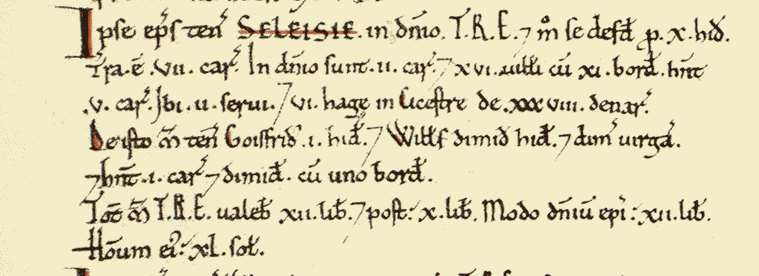 Ipse ep̃s ten̄ SELEISIE. in dn̄io. T.R.E. ⁊ m̊ se defd̄ p. x. hid.
T̄ra.ē. vii. car̄. In dn̄io sunt. ii. car̄. ⁊ xvi. uilłi cū xi. bord. hn̄t
.v. car̄. Ibi. ii. serui. ⁊ vi. hagę in Cicestre de. xxxviii. denar̄.
De isto m̄ ten̄ Goisfrid̄. i. hid̄. ⁊ Wills̄ dimid hid̄. ⁊ dim̄ uirgā.
⁊ hn̄t. i. car̄ ⁊ dimid. cū uno bord̄.
Tot̄ m̄ T.R.E. ualeb̄ xii. lib̄. ⁊ post: x. lib̄. Modo dn̄iū ep̄i: xii. lib̄.
Hoūm ei: xl. sol̄.